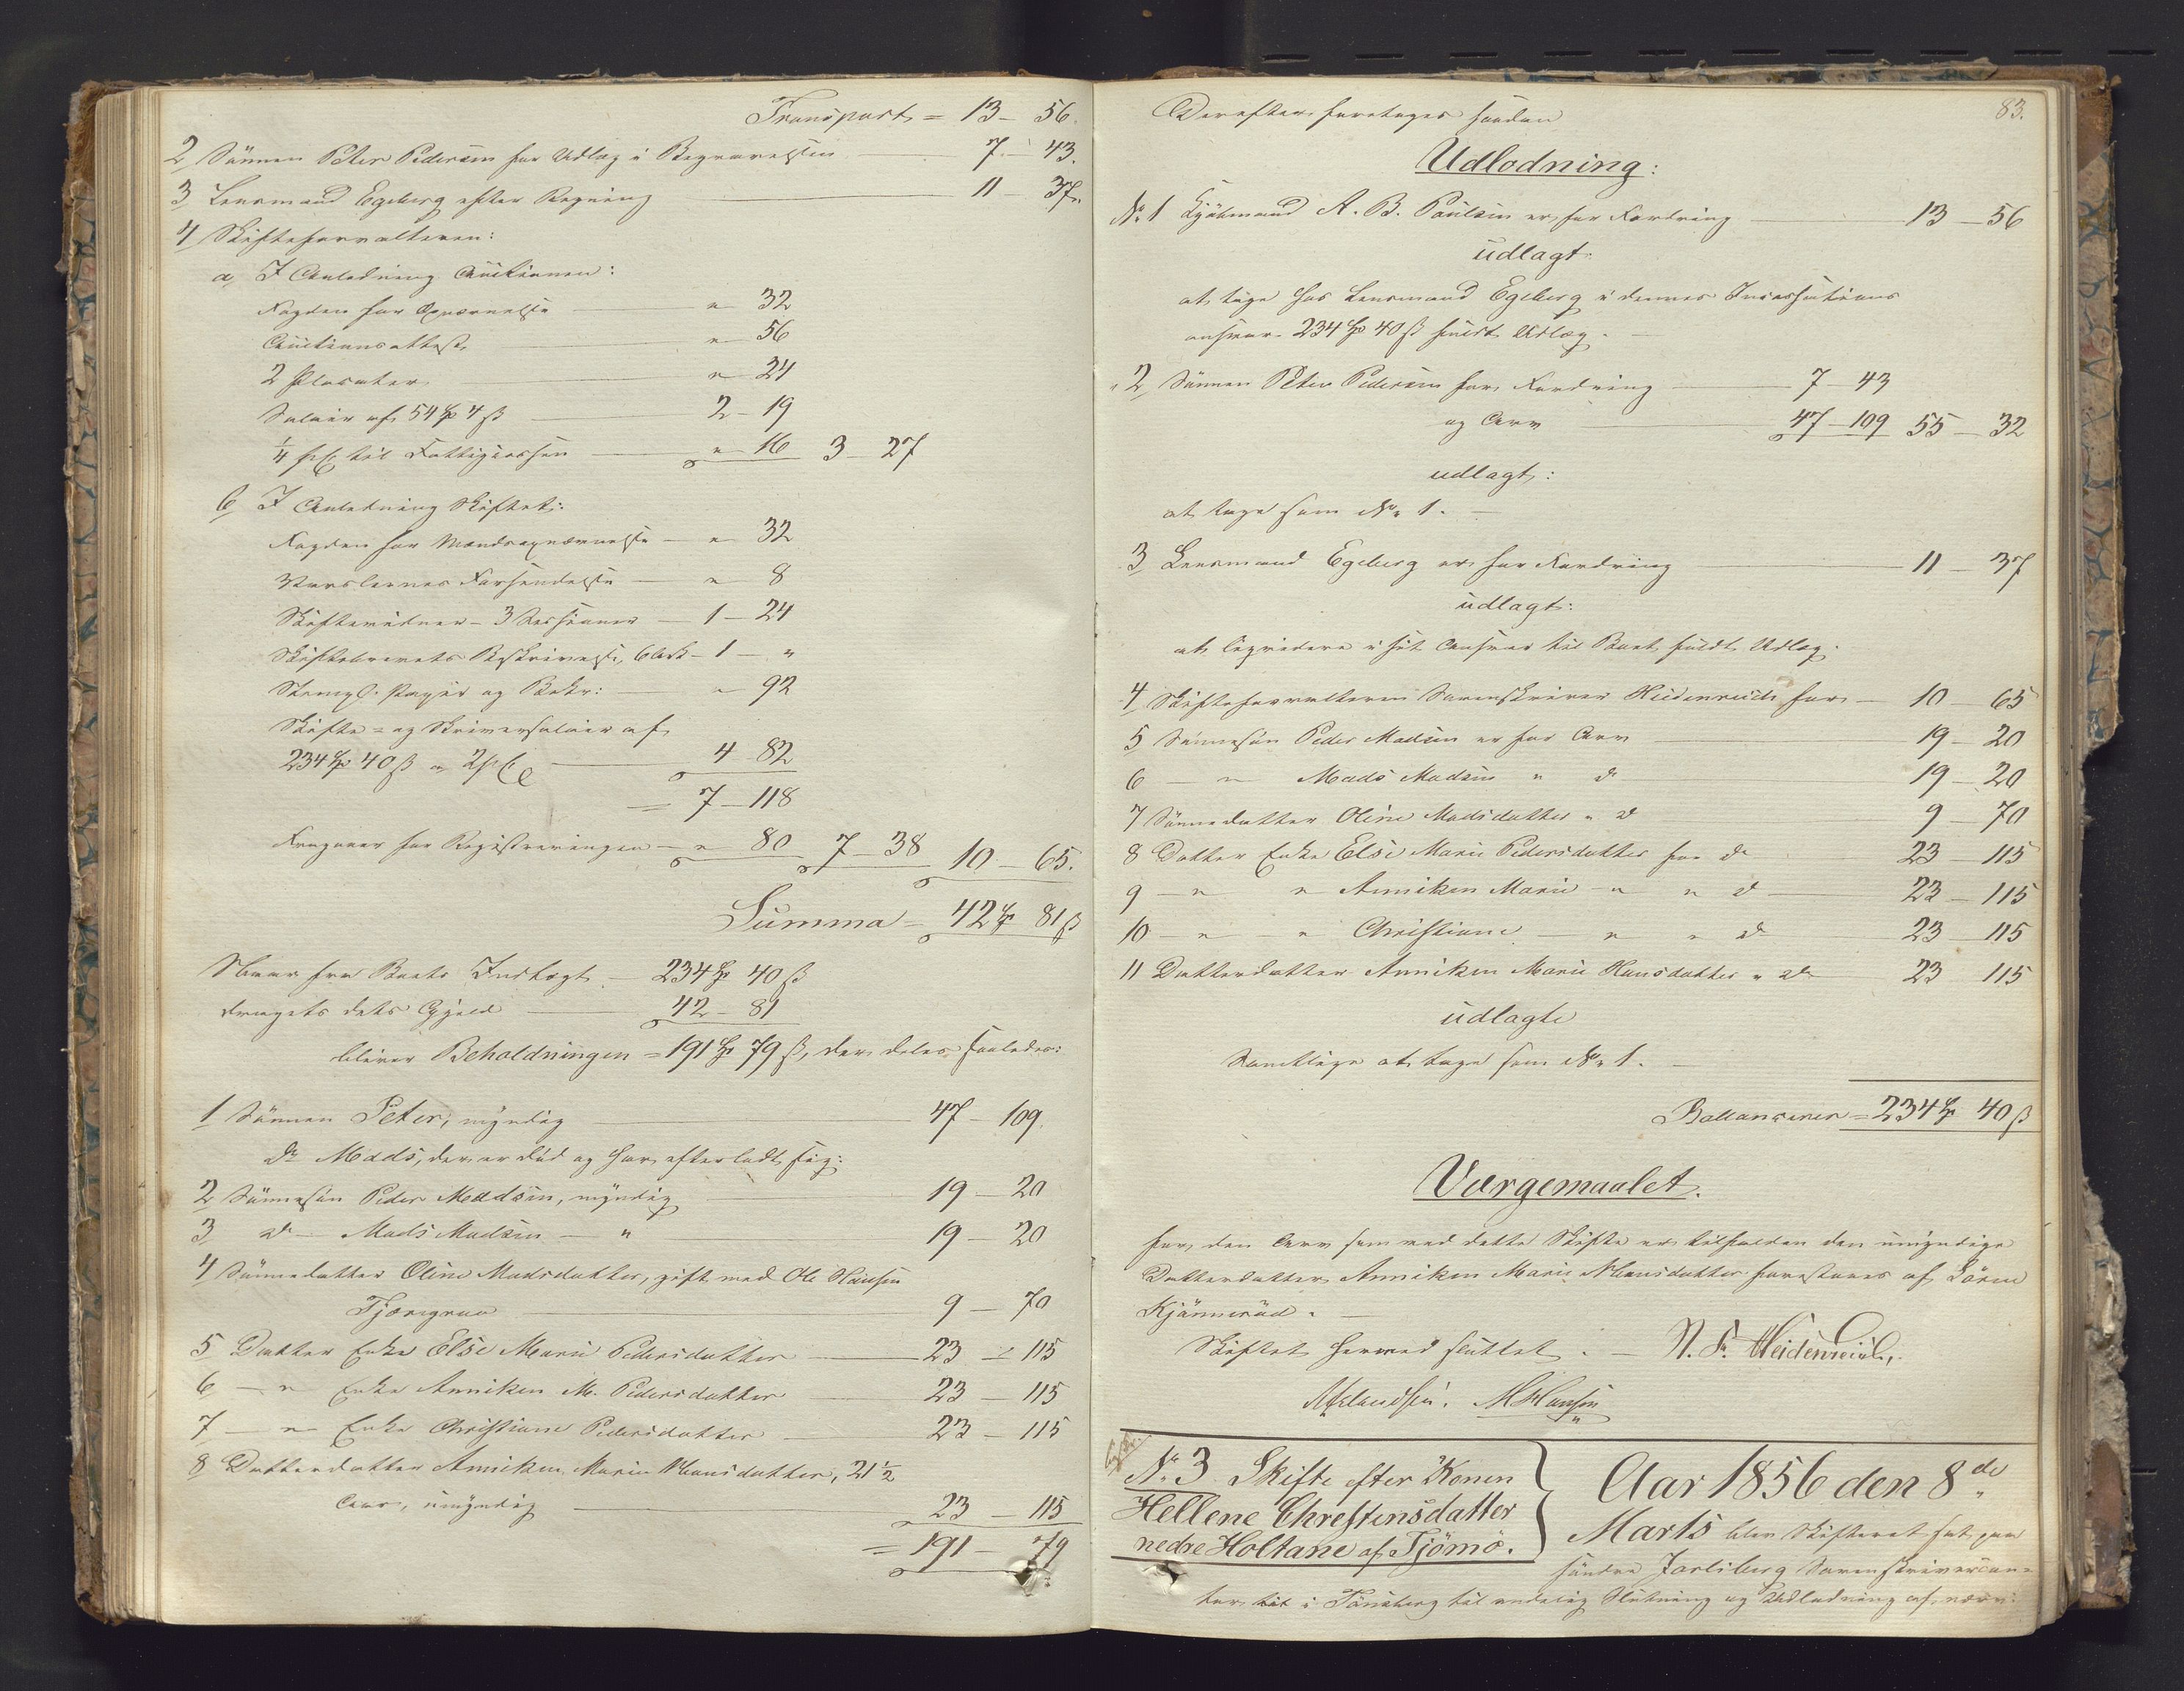 Transport = 13 - 56.
2, Sønnen Peter Pedersen for Udlæg i Begravelsen 7 - 43.
3, Lensmand Egeberg efter Regning 11 - 37.
4, Skifteforvalteren:
a, I Anledning Auctionen:
Fogden for Opnævnelse " 32
Auctionsattest " 56
2 Placater " 24
Salair af 54 Sp 4 ß 2 - 19
¼ pCt til Fattigcassen " 16 3 - 27
b, I Anledning Skiftet:
Fogden for Mændsopnævnelse " 32
Varslernes Forsendelse " 8
Skiftevidner - 3 Sessioner 1 - 24
Skiftebrevets Beskrivelse, 6 Ark - 1 - "
Stempl. Papir og Bekr: " 92
Skifte- og Skriversalair af
234 Sp 40 ß a 2 pCt 4 - 82
= 7 - 118
Fragaaer for Registreringen - " 80 7 - 38 10 - 65.
Summa = 42 Sp 81 ß
Naar fra Boets Indtægt - 234 Sp 40 ß
drages dets Gjæld 42 - 81
bliver Beholdningen = 191 Sp 79 ß, der deles saaledes:
1 Sønnen Peter, myndig 47 - 109.
do Mads, der er død og har efterladt sig:
2 Sønnesøn Peder Madsen, myndig 19 - 20
3, do - Mads Madsen - " 19 - 20
4 Sønnedatter Oline Madsdatter, gift med Ole Hansen
9 - 70
5 Datter Enke Else Marie Pedersdatter 23 - 115
6, - " Enke Anniken M. Pedersdatter 23 - 115
7, - " Enke Christiane Pedersdatter 23 - 115
8 Datterdatter Anniken Marie Hansdatter, 21½
Aar, umyndig 23 - 115
= 191 - 79
83.
Derefter foretoges saadan
Udlodning:
No 1 Kjøbmand A. B. Paulsen er for Fordring 13 - 56
udlagt:
at tage hos Lensmand Egeberg i dennes Incassations
ansvar 234 Sp 40 ß fuldt Udlæg. -
" 2, Sønnen Peter Pedersen for Fordring 7 - 43
og Arv 47 - 109 55 - 32
udlagt:
at tage som No 1. -
3, Lensmand Egeberg er for Fordring 11 - 37
udlagt:
at liqvidere i sit Ansvar til Boet fuldt Udlæg.
4, Skifteforvalteren Sorenskriver Heidenreich for - 10 - 65
5 Sønnesøn Peder Madsen er for Arv 19 - 20
6 - " Mads Madsen " do 19 - 20
7 Sønnedatter Oline Madsdatter " do 9 - 70
8 Datter Enke Else Marie Pedersdatter for do 23 - 115
9 - " " Anniken Marie - " " do 23 - 115
10 - " - " Christiane - " " do 23 - 115
11 Datterdatter Anniken Marie Hansdatter " do 23 115
udlagte
Samtlige at tage som No 1. -
Ballancerer = 234 Sp 40 ß
Værgemaalet.
for den Arv som ved dette Skifte er tilfalden den umyndige
Datterdatter Anniken Marie Hansdatter forestaaes af Sören
Kjønnerød. -
Skiftet hermed sluttet. - N. F. Heidenreich.
M Hansen
No 3 Skifte efter Konen
Hellene Chrestensdatter
nedre Holtane af Tjömö.
Aar 1856 den 8de
Marts blev Skifteret sat paa
søndre Jarlsberg Sorenskrivercon-
tor i Tønsberg til endelig Slutning og Udlodning af nærv: